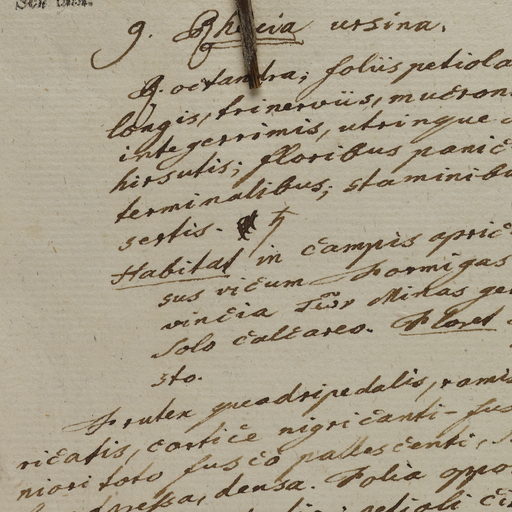 9. Rhexia ursina.
R. octandra; foliis petiola
longis, trinerviis, mucron
integerrimis, utrinque
hirsutis; floribus panic
terminalibus; staminibu
sertis. ♄
Habitat in campis apric
sus vicum Formigas
vincia Minas ge
Solo calcareo. Floret
sto.
Frutex quadripedalis, ramis
ricatis, cortice nigricanti-fus
niori toto fusco pallescenti,
densa. Folia oppo
petioli